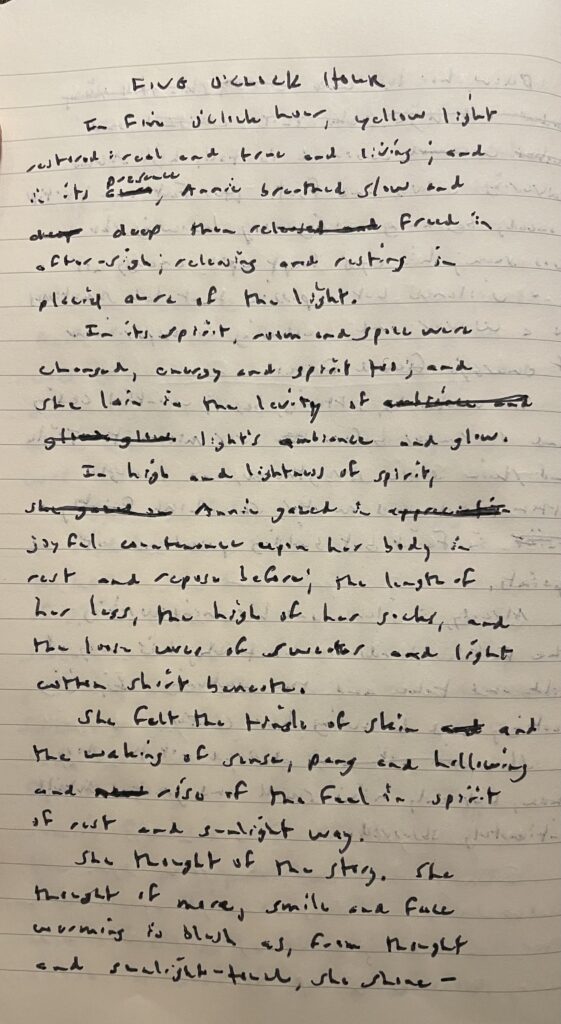 FIVE O'CLOCK HOUR
In Five O'clock hour, yellow light
restored: real and true and living; and
in its presence, Annie breathed slow and
deep deep then released and freed in
after-sigh; releasing and resting in
placid aura of the light.
In its spirit, room and space were
changed, energy and spirit too; and
she lain in the levity of ambience and
glow light's ambience and glow.
In high and lightness of spirit,
she gazed in Annie gazed in
joyful countenance upon her body in
rest and repose before; the length of
her legs, the high of her socks, and
the loose wares of sweater and light
cotten shirt beneath.
She felt the tingle of skin and and
the waking of sense, pang and hollowing
and rise of the feel in spirit
of rest and sunlight way.
She thought of the story. She
thought of more, smile and face
warming in blush as, from thought
and sunlight-touch, she shone -